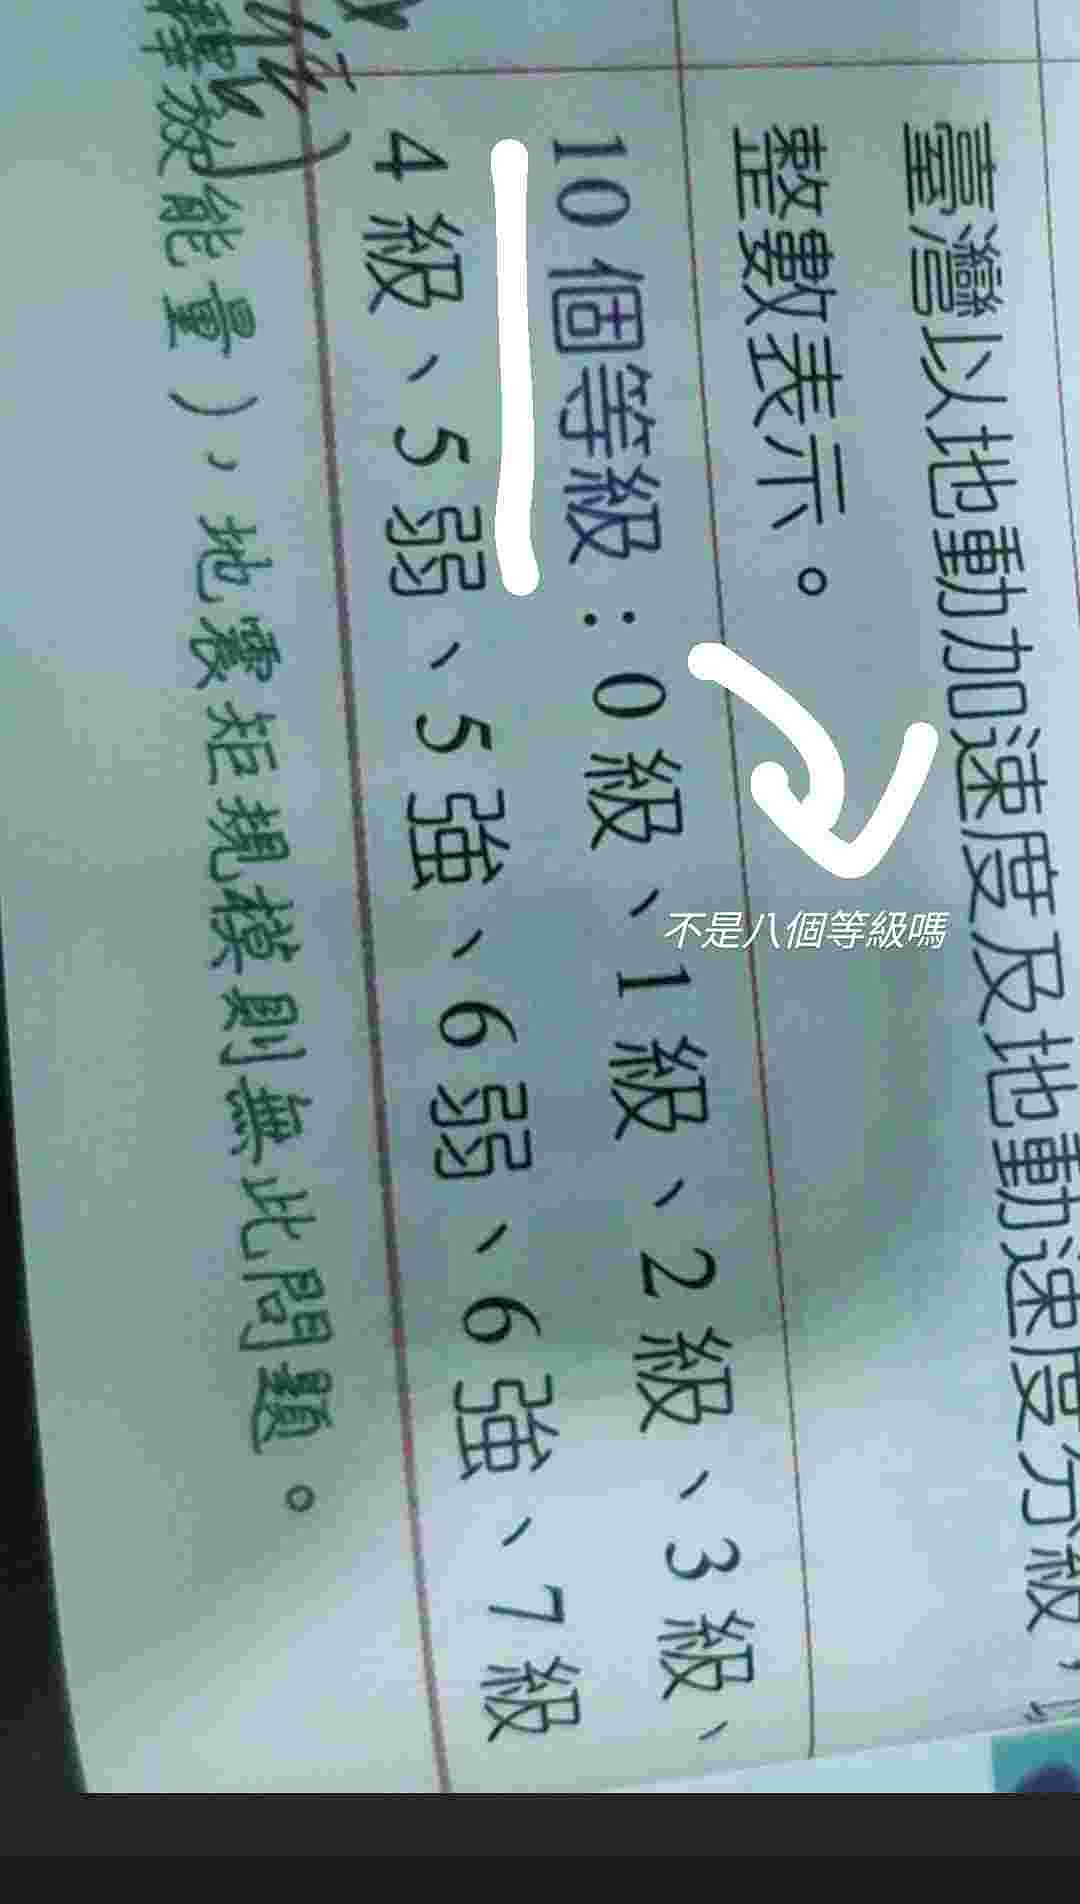 臺灣以地動加速度及地動速度分級，以
整數表示。
10個等級：0級、1級、2級、3級、
4級、5弱、5強、6弱、6強、7級
釋放能量），地震矩規模則無此問題。
不是八個等級嗎